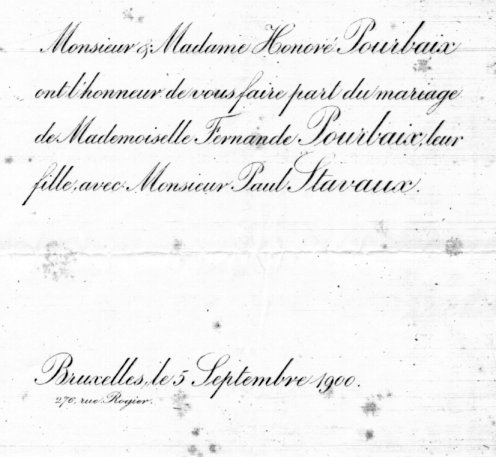 Monsieur & Madame Honoré Pourbaix
ont l'honneur de vous faire part du mariage
de Mademoiselle Fernande Pourbaix, leur
fille, avec Monsieur Paul Stavaux.
Bruxelles, le 5 Septembre 1900.
276, rue Rogier.